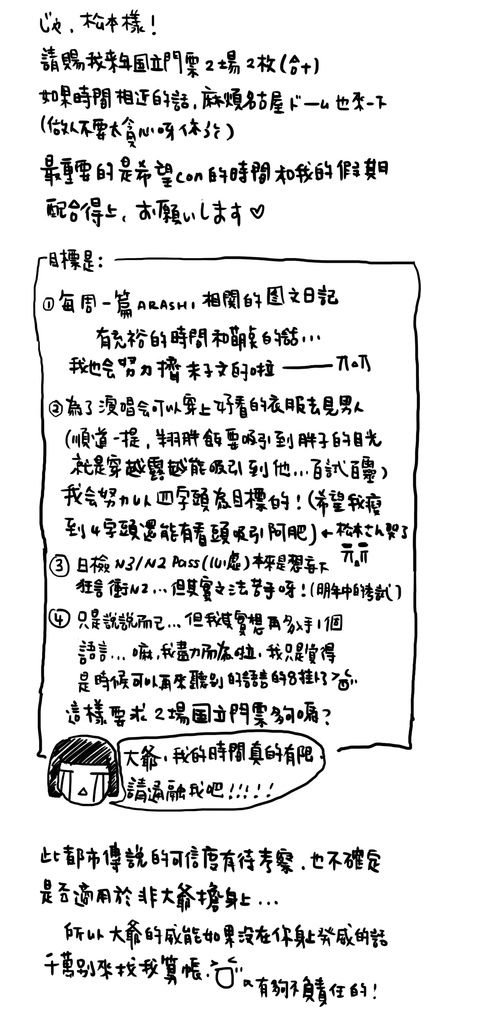 じゃ、松本樣!
請賜我來年国立門票2場2枚(合十)
如果時間相近的話,麻煩名古屋ドーム也來一下
(做人不要太貪心呀你)
最重要的是希望con的時間和我的假期
配合得上、お願いします♡
目標是:
①每周一篇ARASHI相關的图文日記
有充裕的時間和萌臭的話...
我也会努力擠未子文的啦——π△π
②為了演唱会可以穿上好看的衣服去見男人
(順道一提,翔胖飯要吸引到胖子的目光
就是穿越露越能吸引到他...百試百靈)
我会努力以四字頭為目標的!(希望我瘦
到4字頭還能有看頭吸引阿肥)←松本さん哭了
π△π
③日檢N3/N2 Pass(心虛)本來是想要下
狂言衝N2...但其實文法苦手呀!(明年中的考試)
④只是說說而已...但我其實想再多入手1個
語言...嘛,我盡力而為啦,我只是覺得
是時候可以再來聽別的語言的8挂了
這樣要求2場国立門票夠嗎?
大爺,我的時間真的有限,
請通融我吧!!!!!
此都市傳說的可信度有待考察,也不確定
是否適用於非大爺擔身上...
所以大爺的威能如果沒在你身上発威的話
千萬別來找我算帳.
へ有夠不負責任的!